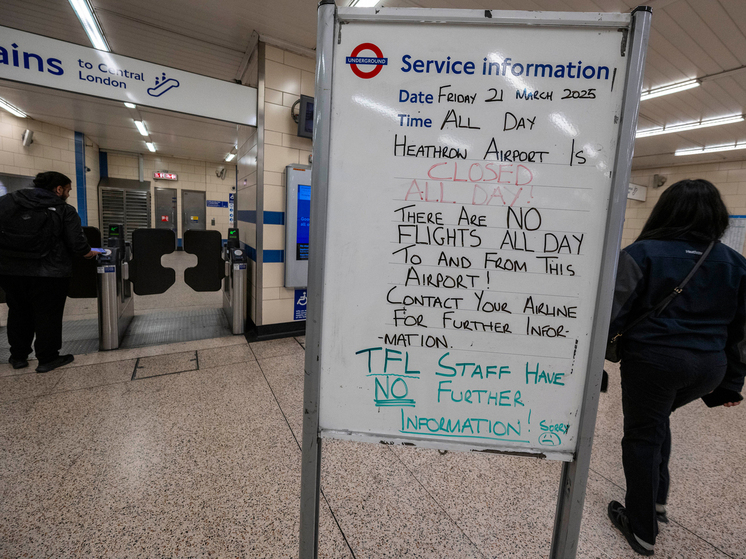 ains to Central
London
UNDERGROUND
Service information
Date FRIDAY 21 MARCH 2025
Time ALL DAY
HEATHROW AIRPORT IS
CLOSED
ALL DAY!
THERE ARE NO
FLIGHTS ALL DAY
TO AND FROM THIS
AIRPORT!
CONTACT YOUR AIRLINE
FOR FURTHER INFOR-
MATION.
TFL STAFF HAVE
NO FURTHER
INFORMATION! SORRY